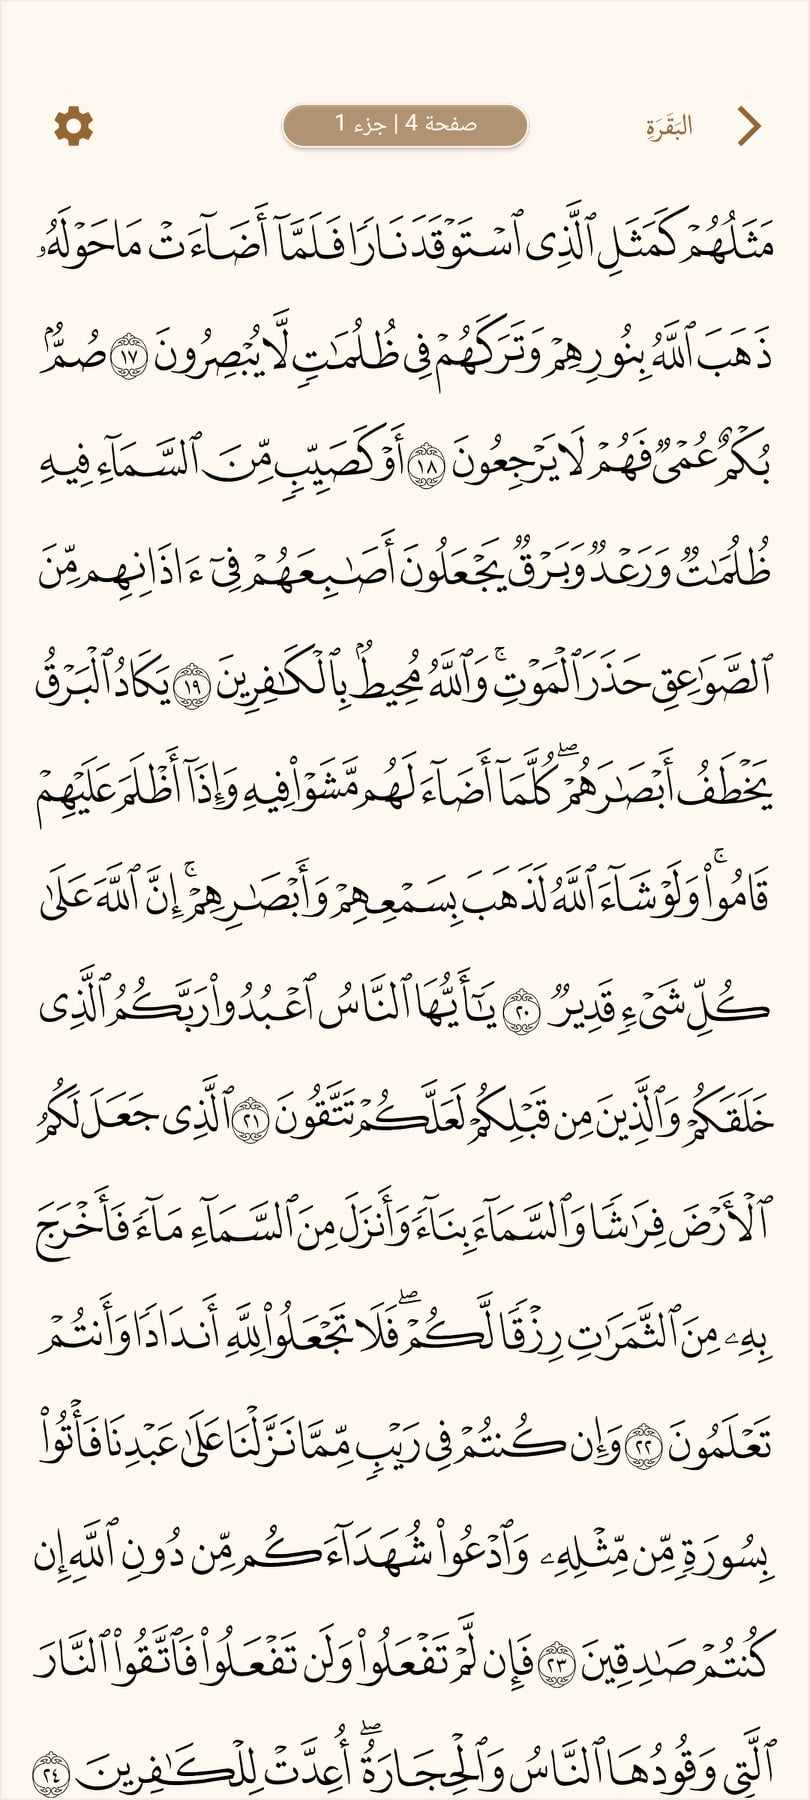 البَقَرَةِ
صفحة 4 | جزء 1
مَثَلُهُمْ كَمَثَلِ ٱلَّذِى ٱسْتَوْقَدَ نَارًا فَلَمَّآ أَضَآءَتْ مَا حَوْلَهُۥ
ذَهَبَ ٱللَّهُ بِنُورِهِمْ وَتَرَكَهُمْ فِى ظُلُمَٰتٍ لَّا يُبْصِرُونَ ١٧ صُمٌّۢ
بُكْمٌ عُمْىٌ فَهُمْ لَا يَرْجِعُونَ ١٨ أَوْ كَصَيِّبٍ مِّنَ ٱلسَّمَآءِ فِيهِ
ظُلُمَٰتٌ وَرَعْدٌ وَبَرْقٌ يَجْعَلُونَ أَصَٰبِعَهُمْ فِىٓ ءَاذَانِهِم مِّنَ
ٱلصَّوَٰعِقِ حَذَرَ ٱلْمَوْتِ ۚ وَٱللَّهُ مُحِيطٌۢ بِٱلْكَٰفِرِينَ ١٩ يَكَادُ ٱلْبَرْقُ
يَخْطَفُ أَبْصَٰرَهُمْ ۖ كُلَّمَآ أَضَآءَ لَهُم مَّشَوْا۟ فِيهِ وَإِذَآ أَظْلَمَ عَلَيْهِمْ
قَامُوا۟ ۚ وَلَوْ شَآءَ ٱللَّهُ لَذَهَبَ بِسَمْعِهِمْ وَأَبْصَٰرِهِمْ ۚ إِنَّ ٱللَّهَ عَلَىٰ
كُلِّ شَىْءٍ قَدِيرٌ ٢٠ يَٰٓأَيُّهَا ٱلنَّاسُ ٱعْبُدُوا۟ رَبَّكُمُ ٱلَّذِى
خَلَقَكُمْ وَٱلَّذِينَ مِن قَبْلِكُمْ لَعَلَّكُمْ تَتَّقُونَ ٢١ ٱلَّذِى جَعَلَ لَكُمُ
ٱلْأَرْضَ فِرَٰشًا وَٱلسَّمَآءَ بِنَآءً وَأَنزَلَ مِنَ ٱلسَّمَآءِ مَآءً فَأَخْرَجَ
بِهِۦ مِنَ ٱلثَّمَرَٰتِ رِزْقًا لَّكُمْ ۖ فَلَا تَجْعَلُوا۟ لِلَّهِ أَندَادًا وَأَنتُمْ
تَعْلَمُونَ ٢٢ وَإِن كُنتُمْ فِى رَيْبٍ مِّمَّا نَزَّلْنَا عَلَىٰ عَبْدِنَا فَأْتُوا۟
بِسُورَةٍ مِّن مِّثْلِهِۦ وَٱدْعُوا۟ شُهَدَآءَكُم مِّن دُونِ ٱللَّهِ إِن
كُنتُمْ صَٰدِقِينَ ٢٣ فَإِن لَّمْ تَفْعَلُوا۟ وَلَن تَفْعَلُوا۟ فَٱتَّقُوا۟ ٱلنَّارَ
ٱلَّتِى وَقُودُهَا ٱلنَّاسُ وَٱلْحِجَارَةُ ۖ أُعِدَّتْ لِلْكَٰفِرِينَ ٢٤